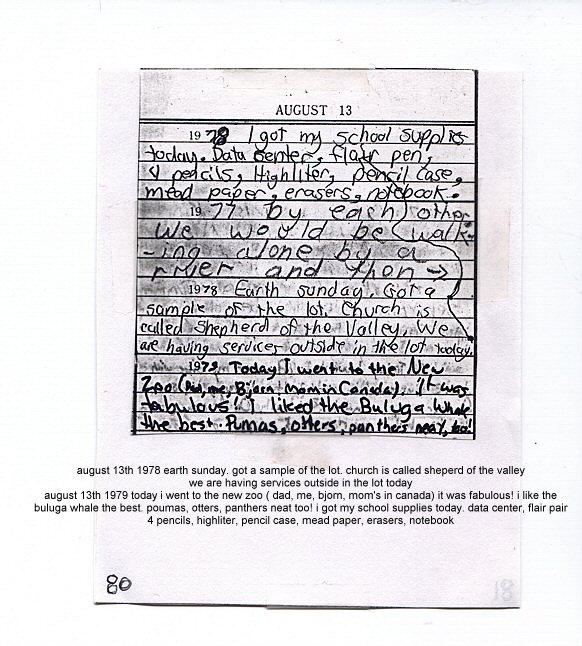 AUGUST 13
1978 I got my school supplies
today. Data center, flair pen,
4 pencils, Highliter, pencil case,
mead paper, erasers, notebook.
1977 by each other
We would be walk-
-ing alone by a
river and then →
1978 Earth sunday. Got a
sample of the lot. Church is
called Shepherd of the Valley. We
are having services outside in the lot today.
1979 Today I went to the New
Zoo (Dad, me, Bjorn, Mom in Canada). It was
fabulous! I liked the Buluga Whale
the best. Pumas, otters, panthers neat, too!
august 13th 1978 earth sunday. got a sample of the lot. church is called sheperd of the valley
we are having services outside in the lot today
august 13th 1979 today i went to the new zoo ( dad, me, bjorn, mom's in canada) it was fabulous! i like the
buluga whale the best. poumas, otters, panthers neat too! i got my school supplies today. data center, flair pair
4 pencils, highliter, pencil case, mead paper, erasers, notebook
80
81